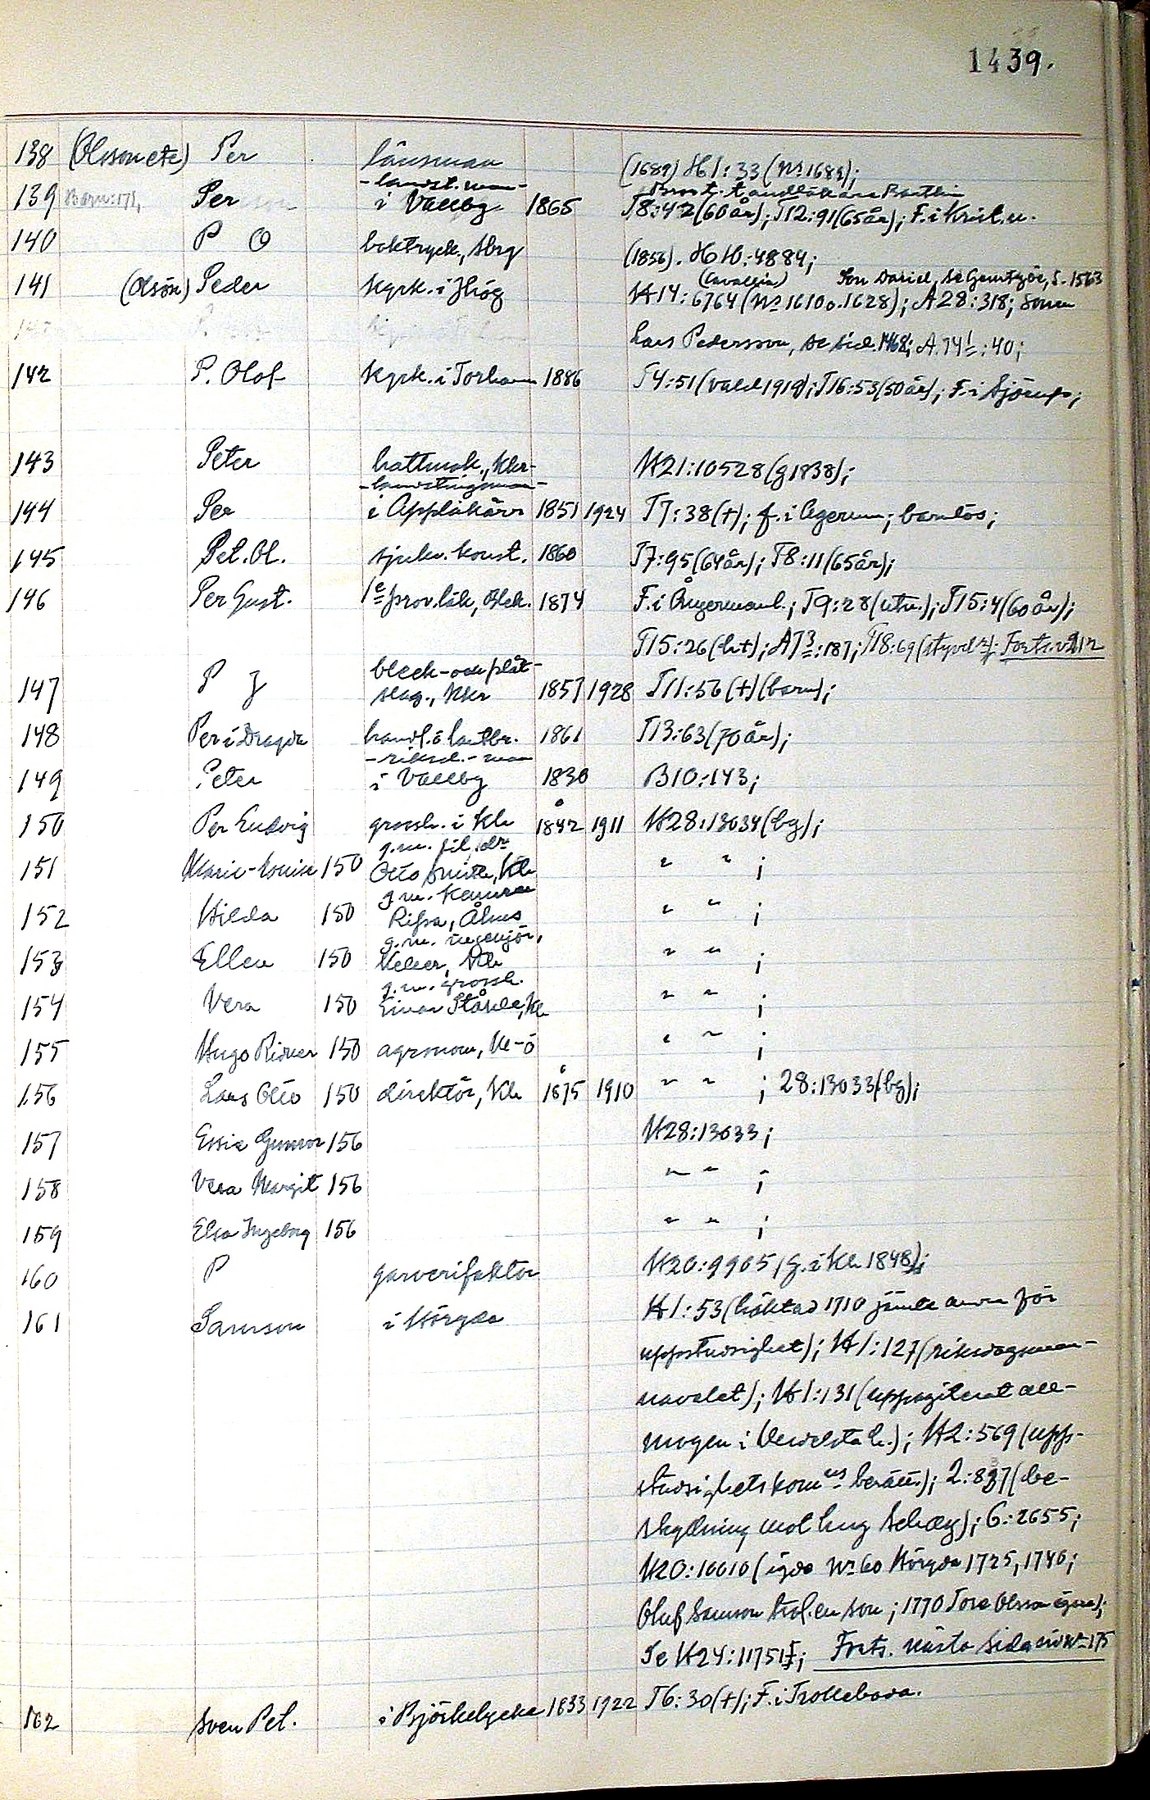 1439.
138 (Olsson etc) Per länsman (1689) H1:33 (No 1689);
139 Barn: 171, Per - landst. man - i Vallby 1865 T8:42 (60 år); T12:91 (65 år); F. i Krist. n.
140 P O boktryck., Sbrg (1856). H10:4884;
141 (Olsön) Peder kyrk. i Hög (Cavallin) Son Daniel, se Gemtzöe, f. 1563
H14:6764 (No 1610 o. 1628); A28:318; sonen
Lars Pedersson, se sid. 1468; A.141:40;
142 P. Olof kyrk. i Torhamn 1886 T4:51 (vald 1919); T16:53 (50 år); F. i Sjörup;
143 Peter hattmak., Khr H21:10528 (g 1838);
144 Per - landstingsman - i Applakärr 1851 1924 T7:38 (+); f. i Agerum; barnlös;
145 Pet. Ol. sjukv. konst. 1860 T7:95 (64 år); T8:11 (65 år);
146 Per Gust. 1e prov. läk, Blek. 1874 F. i Ångermanl.; T9:28 (utn.); T15:4 (60 år);
T15:26 (h+); A73:187; T18:69 (styvdr); Forts. v. 212
147 P J bleck- och plåt- slag., Khr 1857 1928 T11:56 (+) (barn);
148 Per i Dragda handl. o lantbr. 1861 T13:63 (70 år);
149 Peter - riksd. - man i Vallby 1830 B10:143;
150 Per Ludvig grossh. i Kh 1842 1911 H28:13034 (bg);
151 Marie-Louise 150 g.m. fil. dr Otto Smith, Kh " " ;
152 Hilda 150 g.m. Kamrer Rifsa, Åhus " " ;
153 Ellen 150 g.m. ingenjör, Keller, Kh " " ;
154 Vera 150 g.m. grossh. Einar Ståhle, Kh " " ;
155 Hugo Ridner 150 agronom, Kh-ö " " ;
156 Lars Otto 150 direktör, Kh 1875 1910 " " ; 28:13033 (bg);
157 Essie Gunnor 156 H28:13033;
158 Vera Margit 156 " " ;
159 Elsa Ingeborg 156 " " ;
160 P garverifaktor H20:9905, (g. i Kh 1848);
161 Samson i Hörgda H1:53 (häktad 1710 jämte annan för
uppstudsighet); H1:127 (riksdagsman-
navalet); H1:131 (uppagiterat all-
mogen i Medelsta h.); H2:569 (upp-
studsighetskomns berätt.); 2:837 (be-
skyllning mot lmg Schæy); 6:2655;
H20:10010 (ägde No 60 Hörgda 1725, 1746;
Oluf Samson trol. en son; 1770 Tore Olsson ägare);
Se H24:11751f; Forts. nästa sida vid No 175
162 Sven Pet. i Björkelycke 1833 1922 T6:30 (+); F. i Trolleboda.